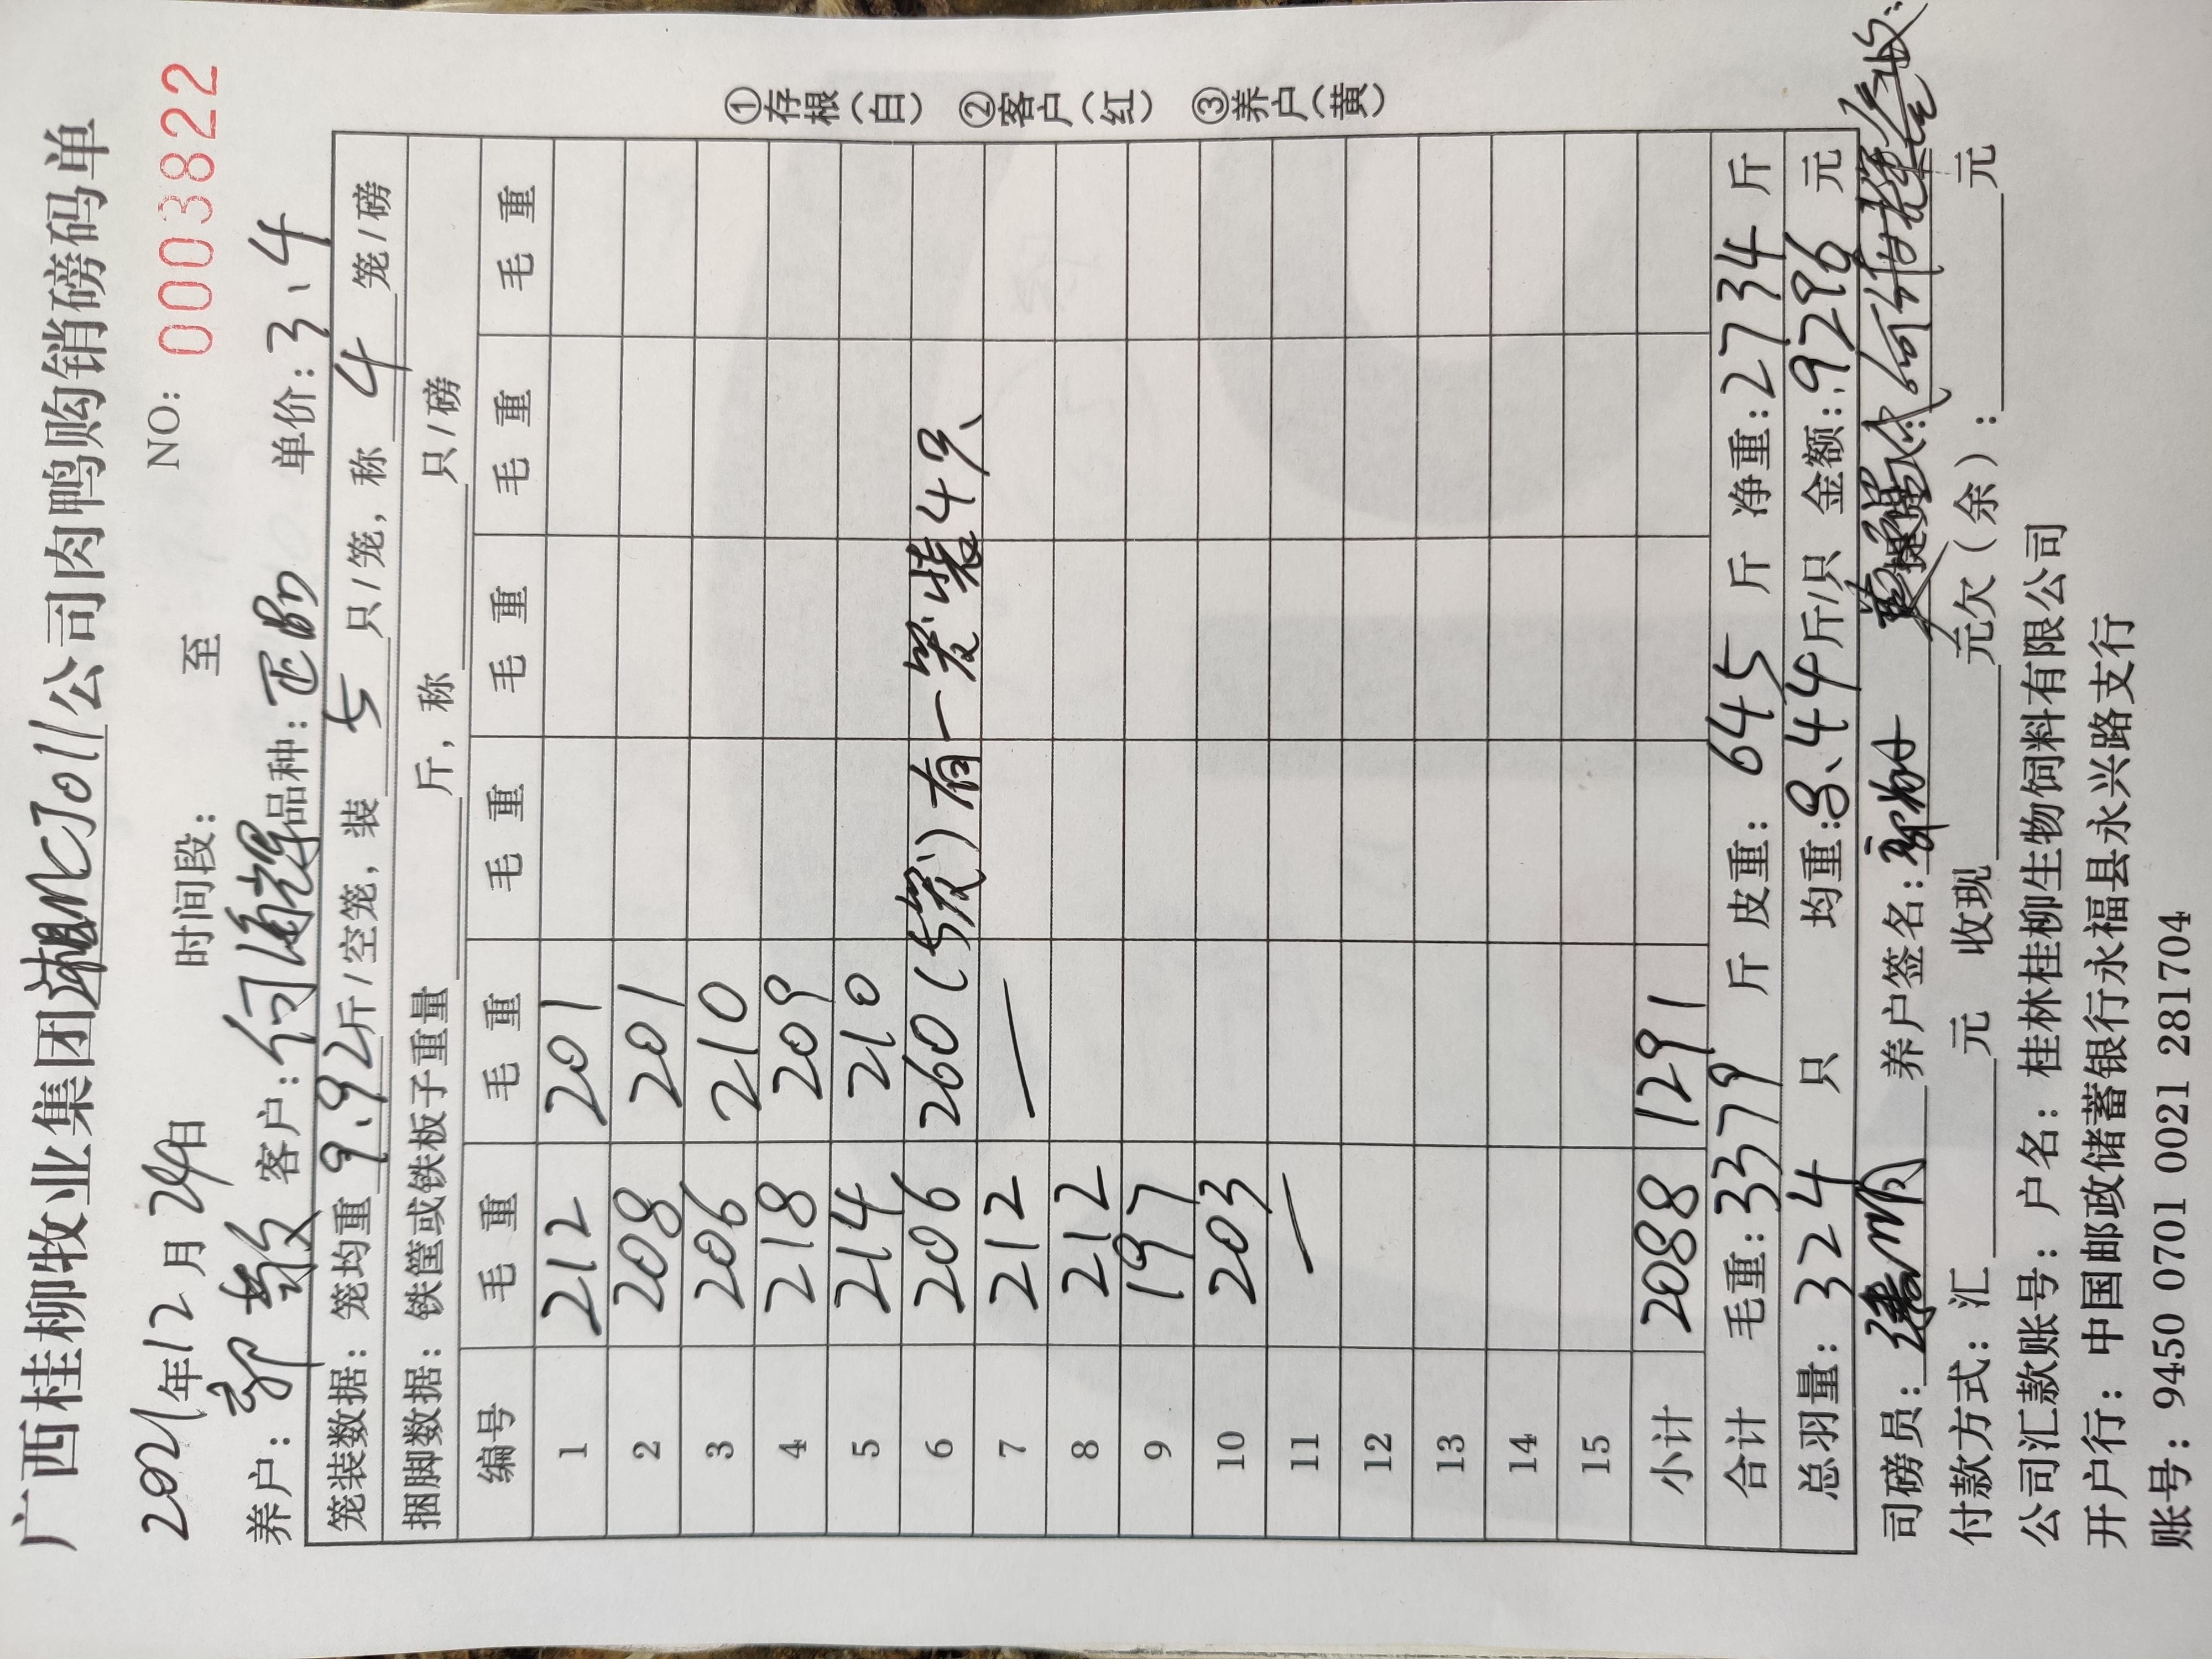 广西桂柳牧业集团湘MCJ011公司肉鸭购销磅码单
2021年12月24日 时间段: 至 NO: 0003822
养户: 郭敏 客户: 何海辉 品种: 单价: 3、4
笼装数据: 笼均重 9、92 斤/空笼, 装 5 只/笼, 称 4 笼/磅
捆脚数据: 铁筐或铁板子重量 斤, 称 只/磅
编号 毛重 毛重 毛重 毛重 毛重 毛重
1 212 201
2 208 201
3 206 210
4 218 209
5 214 210
6 206 260 (5笼) 有一笼装4只
7 212 —
8 212
9 197
10 203
11 —
12
13
14
15
小计 2088 1291
合计 毛重: 3379 斤 皮重: 645 斤 净重: 2734 斤
总羽量: 324 只 均重: 8、44 斤/只 金额: 9296 元
司磅员: 养户签名:
付款方式: 汇 元 收现 元欠(余): 元
公司汇款账号: 户名: 桂林桂柳生物饲料有限公司
开户行: 中国邮政储蓄银行永福县永兴路支行
账号: 9450 0701 0021 281704
①存根(白) ②客户(红) ③养户(黄)